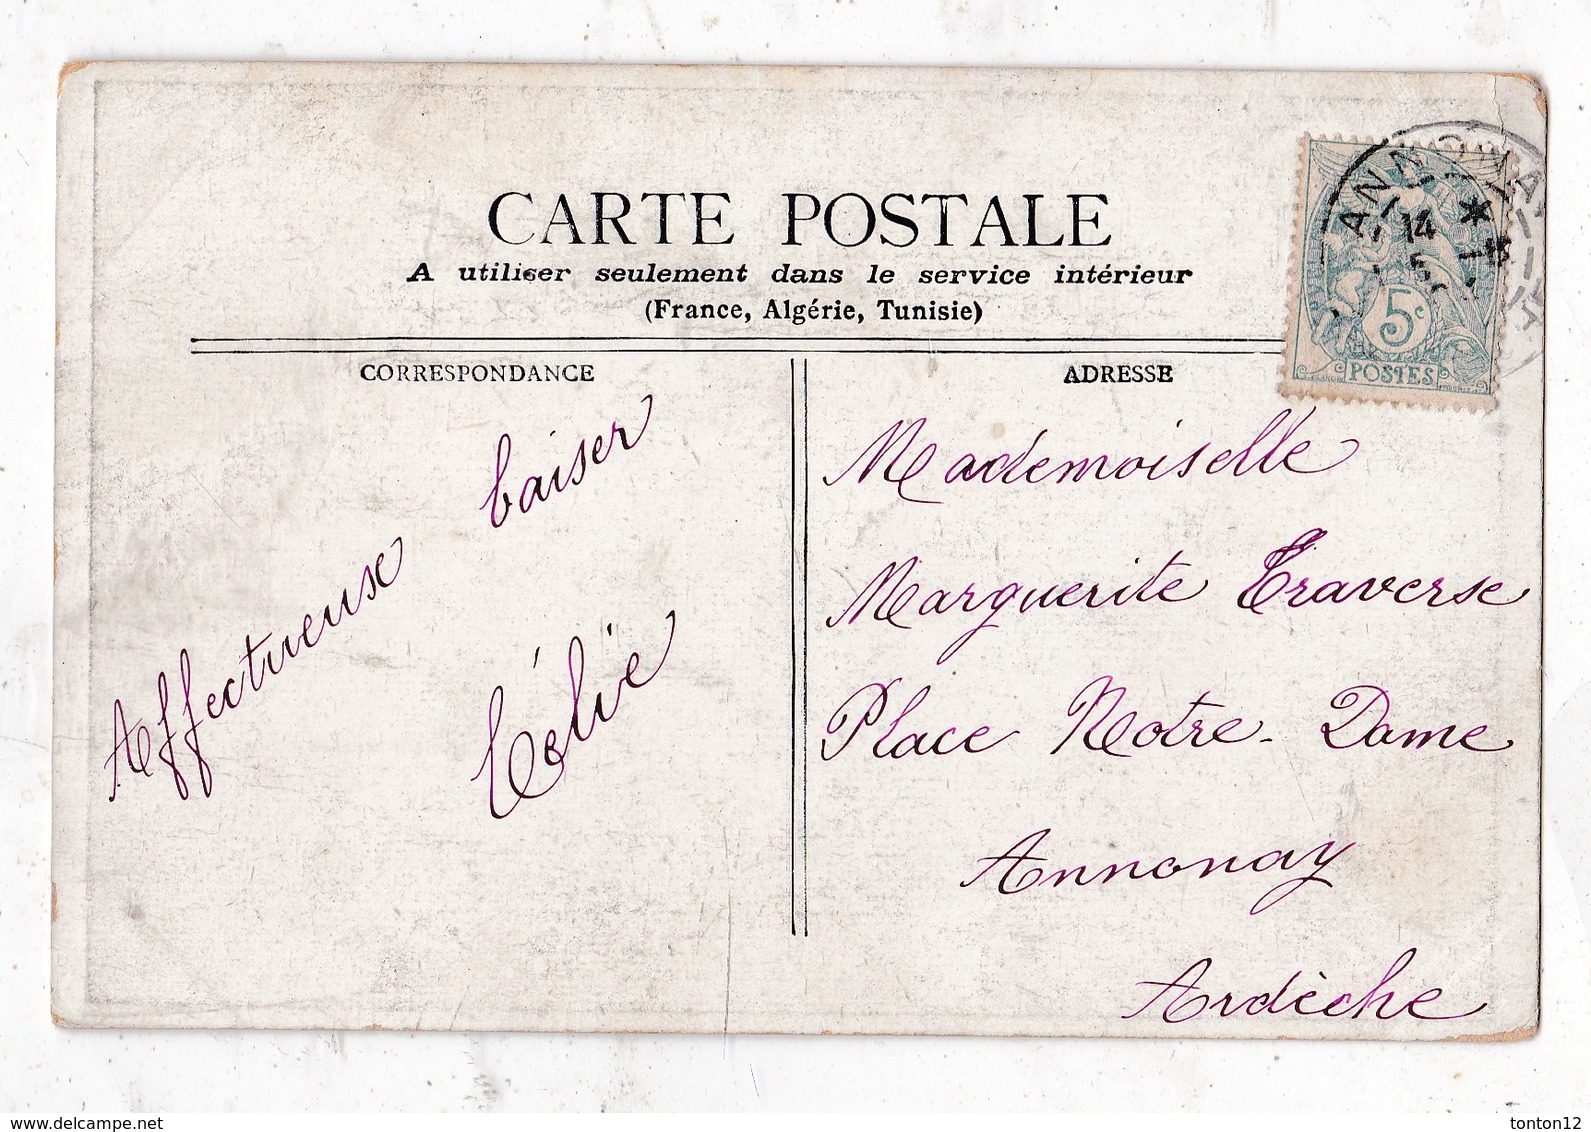 CARTE POSTALE
A utiliser seulement dans le service intérieur
(France, Algérie, Tunisie)
CORRESPONDANCE
Affectueuse baiser
Célie
ADRESSE
Mademoiselle
Marguerite Traverse
Place Notre-Dame
Annonay
Ardèche
ANNONAY
14
5
5c
POSTES
www.delcampe.net
tonton12